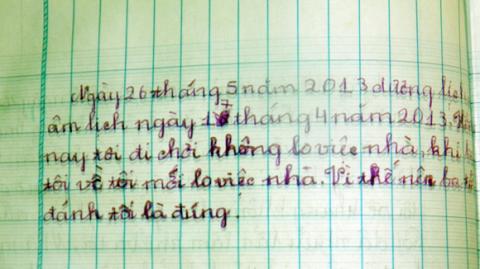 Ngày 26 tháng 5 năm 2013 dương lịch
âm lịch ngày 17 tháng 4 năm 2013.
nay tôi đi chơi không lo việc nhà, khi
tôi về tôi mới lo việc nhà. Vì thế nên
đánh tôi là đúng.